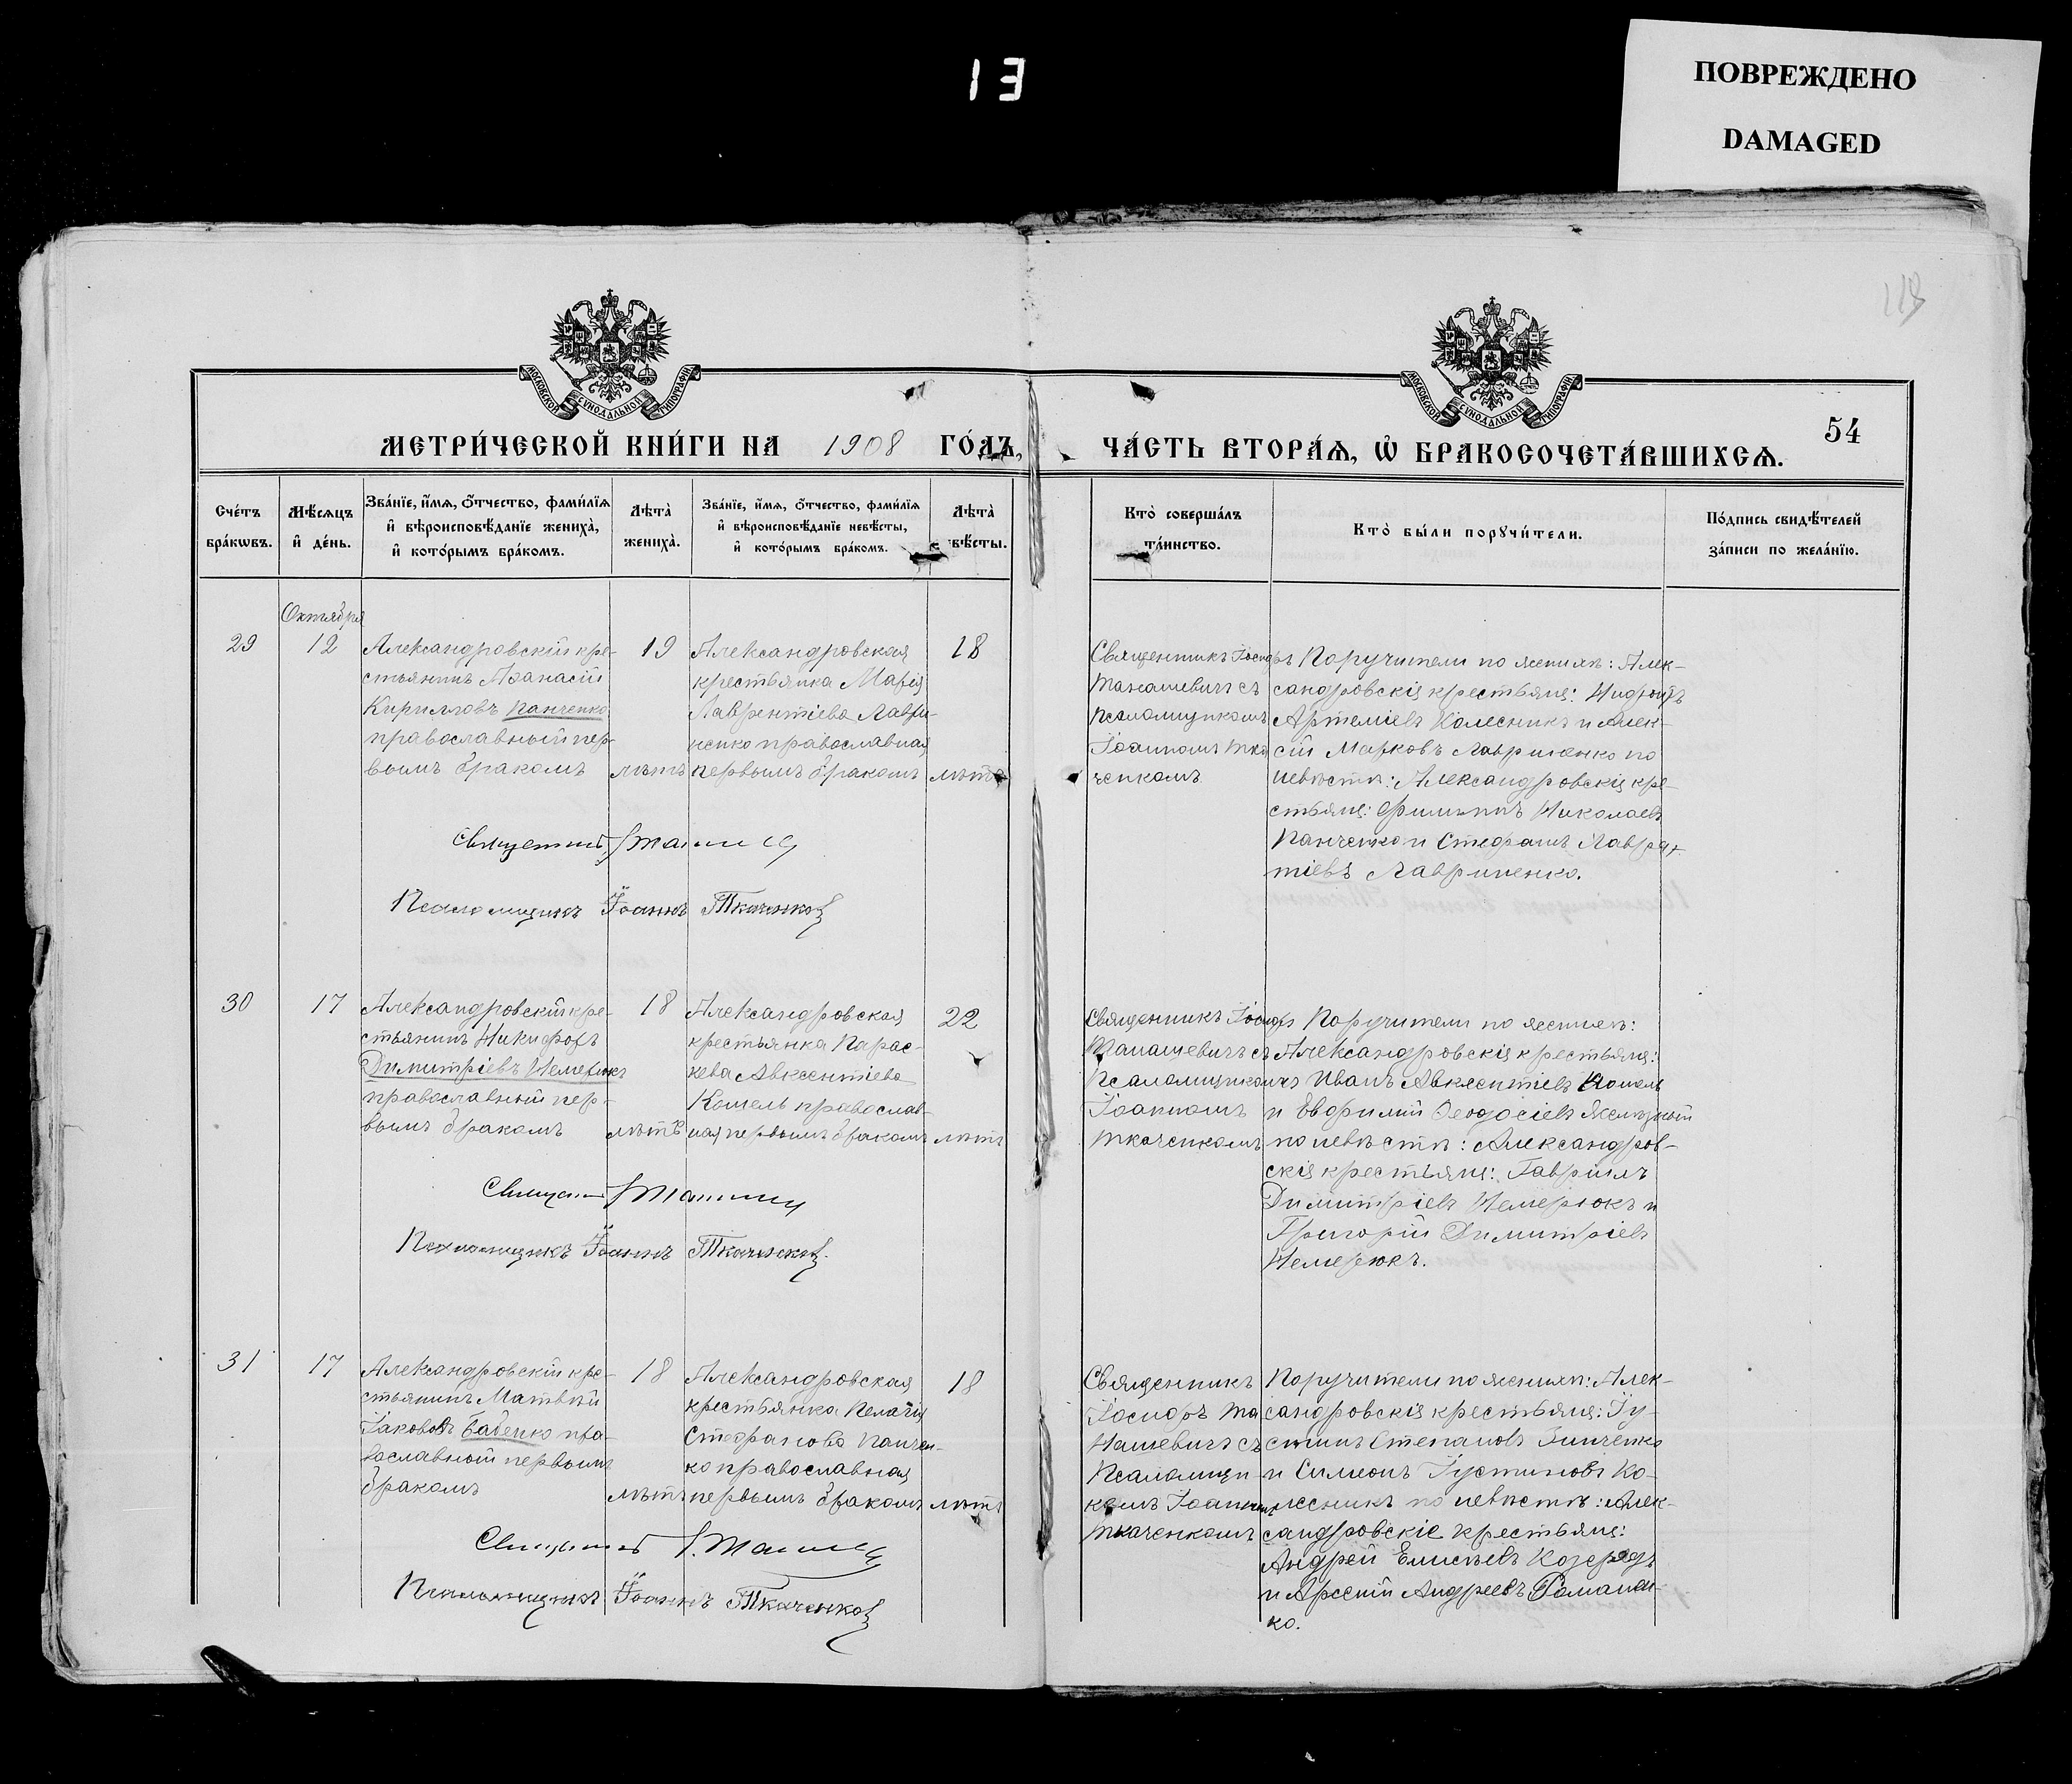 13
ПОВРЕЖДЕНО
DAMAGED
119
МОСКОВСКОЙ СѴНОДАЛЬНОЙ ТИПОГРАФІИ
МОСКОВСКОЙ СѴНОДАЛЬНОЙ ТИПОГРАФІИ
МЕТРИ́ЧЕСКОЙ КНИ́ГИ НА 1908 ГО́ДЪ,
ЧА́СТЬ ВТОРА́Ѧ, Ѽ БРАКОСОЧЕТА́ВШИХСѦ.
54
Сче́тъ
бра́кѡвъ.
Мѣ́сѧцъ
и҆ де́нь.
Зва́нїе, и҆́мѧ, ѻ҆́тчество, фами́лїѧ
и҆ вѣроисповѣ́данїе жениха̀,
и҆ кото́рымъ бра́комъ.
Лѣта̀
жениха̀.
Зва́нїе, и҆́мѧ, ѻ҆́тчество, фами́лїѧ
и҆ вѣроисповѣ́данїе невѣ́сты,
и҆ кото́рымъ бра́комъ.
Лѣта̀
вѣ́сты.
Кто̀ соверша́лъ
та́инство.
Кто̀ бы́ли порꙋчи́тели.
По́дпись свидѣ́телей
за́писи по жела́нїю.
Октября
29
12
Александровскій кре-
стьянинъ Аѳанасій
Кирилловъ Панченко
православный пер-
вымъ бракомъ
19
лѣтъ
Александровская
крестьянка Марія
Лаврентіева Лаври-
ненко православная
первымъ бракомъ
18
лѣтъ
Священникъ Іосифъ
Танашевичъ съ
псаломщикомъ
Іоанномъ Тка
ченкомъ
Поручители по женихѣ: Алек-
сандровскія крестьяне: Нифонтъ
Артеміевъ Колесникъ и Алек-
сій Марковъ Лавриненко по
невѣстѣ: Александровскія кре-
стьяне: Филиппъ Николаевъ
Панченко и Стефанъ Лаврен-
тіевъ Лавриненко.
Священникъ
Псаломщикъ Іоаннъ Ткаченко
30
17
Александровскій кре-
стьянинъ Никифоръ
Димитріевъ Немерюкъ
православный пер-
вымъ бракомъ
18
лѣтъ
Александровская
крестьянка Парас-
кева Авксентіева
Кошель православ-
ная первымъ бракомъ
22
лѣтъ
Священникъ Іосифъ
Танашевичъ съ
Псаломщикомъ
Іоанномъ
Ткаченкомъ
Поручители по женихѣ:
Александровскія крестьяне:
Иванъ Авксентіевъ Кошель
и Евфимій Ѳеодосіевъ
по невѣстѣ: Александров-
скія крестьяне: Гавріилъ
Димитріевъ Немерюкъ и
Григорій Димитріевъ
Немерюкъ.
Священникъ
Псаломщикъ Іоаннъ Ткаченко.
31
17
Александровскій кре-
стьянинъ Матвѣй
Іакововъ Бабенко пра-
вославный первымъ
бракомъ
18
лѣтъ
Александровская
крестьянка Пелагія
Стефанова Панчен-
ко православная
первымъ бракомъ
18
лѣтъ
Священникъ
Іосифъ Та
нашевичъ съ
Псаломщи-
комъ Іоанномъ
Ткаченкомъ
Поручители по женихѣ: Алек-
сандровскія крестьяне: Іу-
стинъ Степановъ Зинченко
и Симеонъ Іустиновъ Ко-
лесникъ по невѣстѣ: Алек-
сандровскіе крестьяне:
Андрей Елисѣевъ
и Арсеній Андреевъ Романен-
ко.
Священникъ
Псаломщикъ Іоаннъ Ткаченко